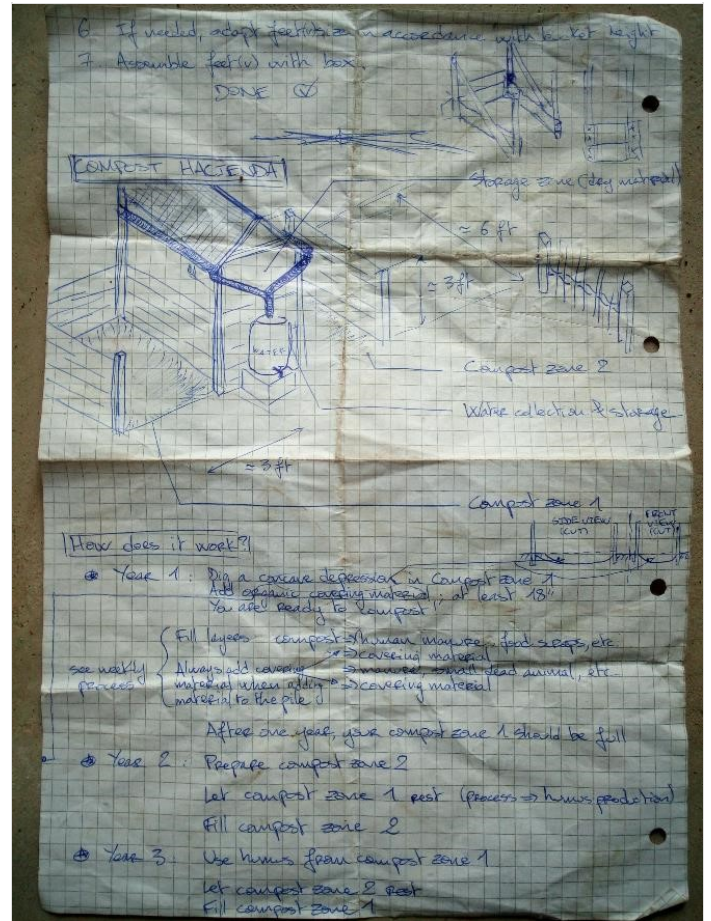 6 If needed, adapt feet(v) size in accordance with bucket height
7. Assemble feet(v) with box.
DONE
COMPOST HACIENDA
Storage zone (dry material)
≈ 6 ft
≈ 3 ft
WATER
Compost zone 2
Water collection & storage
≈ 3 ft
Compost zone 1
SIDE VIEW (CUT)
FRONT VIEW (CUT)
How does it work?
Year 1 : Dig a concave depression in Compost zone 1
Add organic covering material ; at least 18"
You are ready to compost
Fill layers compost → human manure, food scraps, etc.
→ covering material
see weekly process
Always add covering material when adding material to the pile
→ manure, small dead animal, etc.
→ covering material
After one year, your compost zone 1 should be full
Year 2 : Prepare compost zone 2
Let compost zone 1 rest (process → humus production)
Fill compost zone 2
Year 3 Use humus from compost zone 1
Let compost zone 2 rest
Fill compost zone 1